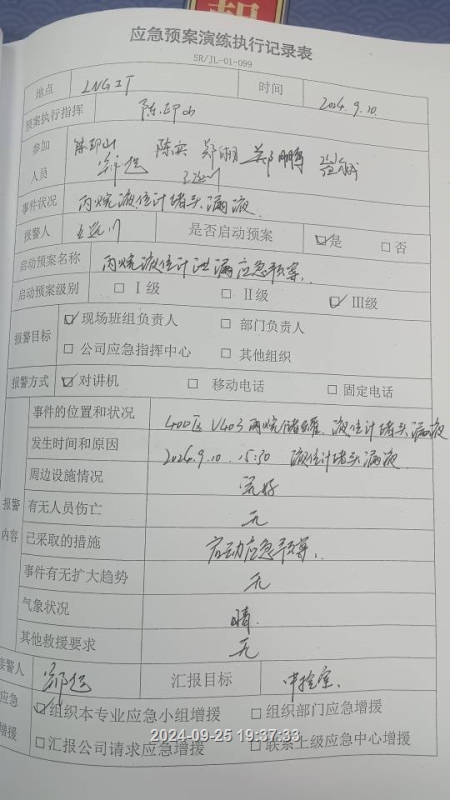 应急预案演练执行记录表
SR/JL-01-099
地点 LNG工厂 时间 2024.9.10
预案执行指挥 陈印山
参加人员 陈印山 陈兵 郑翔 郑鹏
事件状况 丙烷液位计堵头漏液
报警人 是否启动预案 ☑是 □否
启动预案名称 丙烷液位计泄漏应急预案
启动预案级别 □Ⅰ级 □Ⅱ级 ☑Ⅲ级
报警目标 ☑现场班组负责人 □部门负责人
□公司应急指挥中心 □其他组织
报警方式 ☑对讲机 □移动电话 □固定电话
报警内容
事件的位置和状况 400区V403丙烷储罐液位计堵头漏液
发生时间和原因 2024.9.10 15:30 液位计堵头漏液
周边设施情况 完好
有无人员伤亡 无
已采取的措施 启动应急预案
事件有无扩大趋势 无
气象状况 晴
其他救援要求 无
接警人 汇报目标 中控室
应急增援 ☑组织本专业应急小组增援 □组织部门应急增援
□汇报公司请求应急增援 □联系上级应急中心增援
2024-09-25 19:37:33